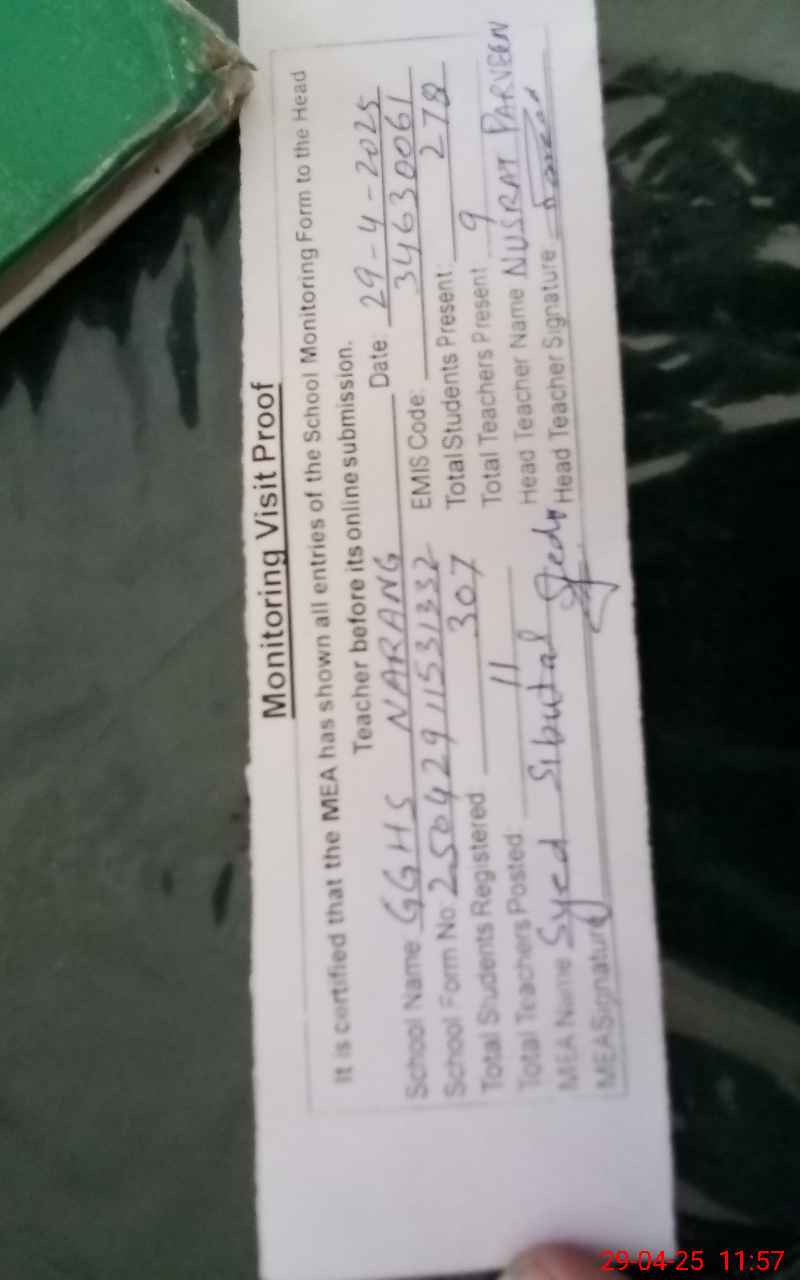 Monitoring Visit Proof
It is certified that the MEA has shown all entries of the School Monitoring Form to the Head
Teacher before its online submission.
School Name GGHS NARANG Date: 29-4-2025
School Form No. 25042911531332 EMIS Code: 34630061
Total Students Registered 307 Total Students Present: 278
Total Teachers Posted: 11 Total Teachers Present 9
MEA Name Syed Head Teacher Name NUSRAT PARVEEN
MEA Signature Head Teacher Signature
29-04-25 11:57